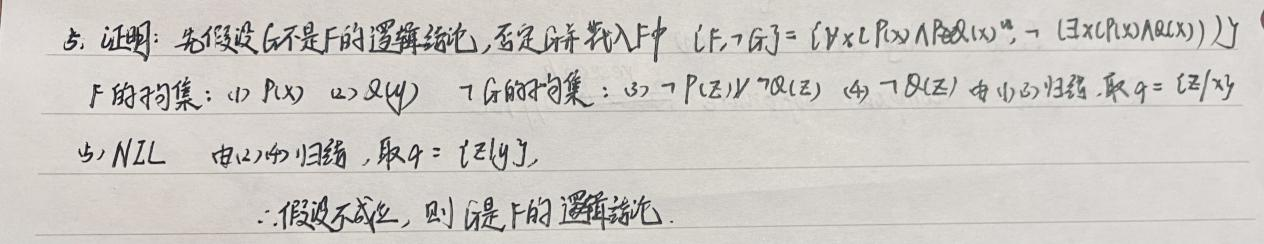 5. 证明: 先假设G不是F的逻辑结论,否定G并载入F中 {F,¬G}={∀x(P(x)∧Q(x)),¬(∃x(P(x)∧Q(x)))}
F的子句集: (1) P(x) (2) Q(y) ¬G的子句集: (3) ¬P(z)∨¬Q(z) (4) ¬Q(z) 由(1)(3)归结,取q={z/x}
(5) NIL 由(2)(4)归结,取q={z/y},
∴假设不成立,则G是F的逻辑结论.